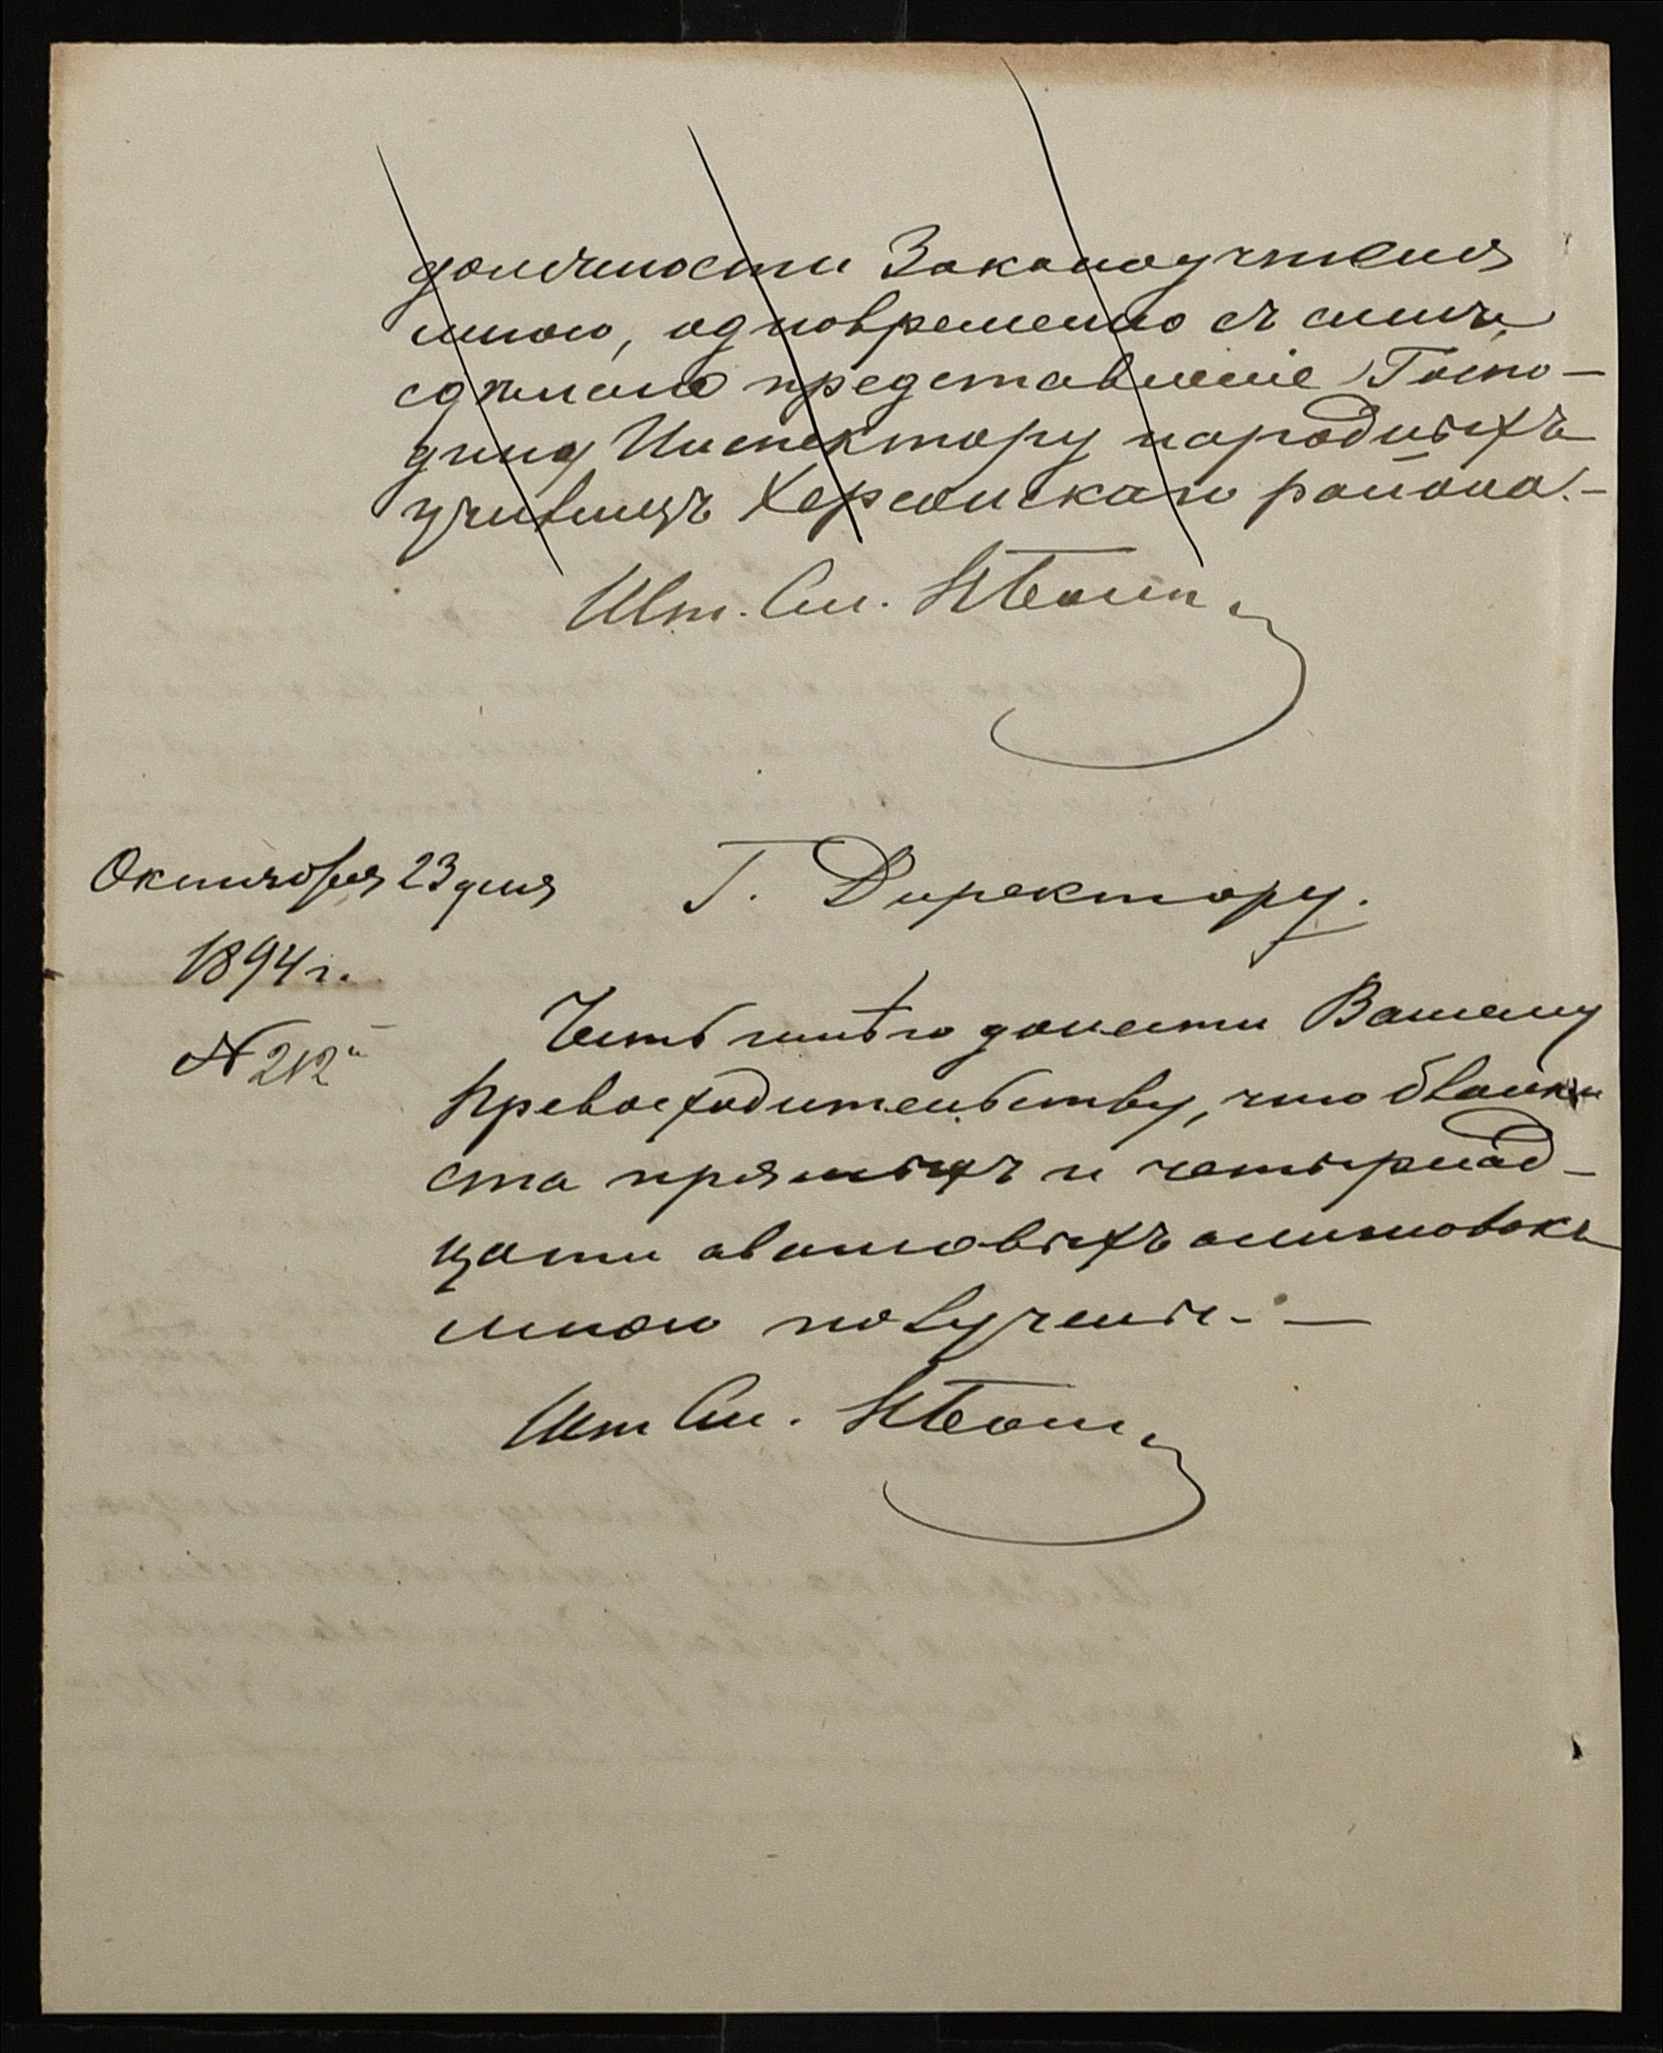 должности Законоучителя
мною, одновременно съ симъ,
сдѣлано представленіе Госпо-
дину Инспектору народныхъ
училищъ Херсонскаго района.-
Шт. См.
Октября 23 дня
1894 г.
№ 212
Г. Директору.
Честь имѣю донести Вашему
Превосходительству, что бланки
ста прямыхъ и четырнад-
цати
мною получены. —
Шт См.